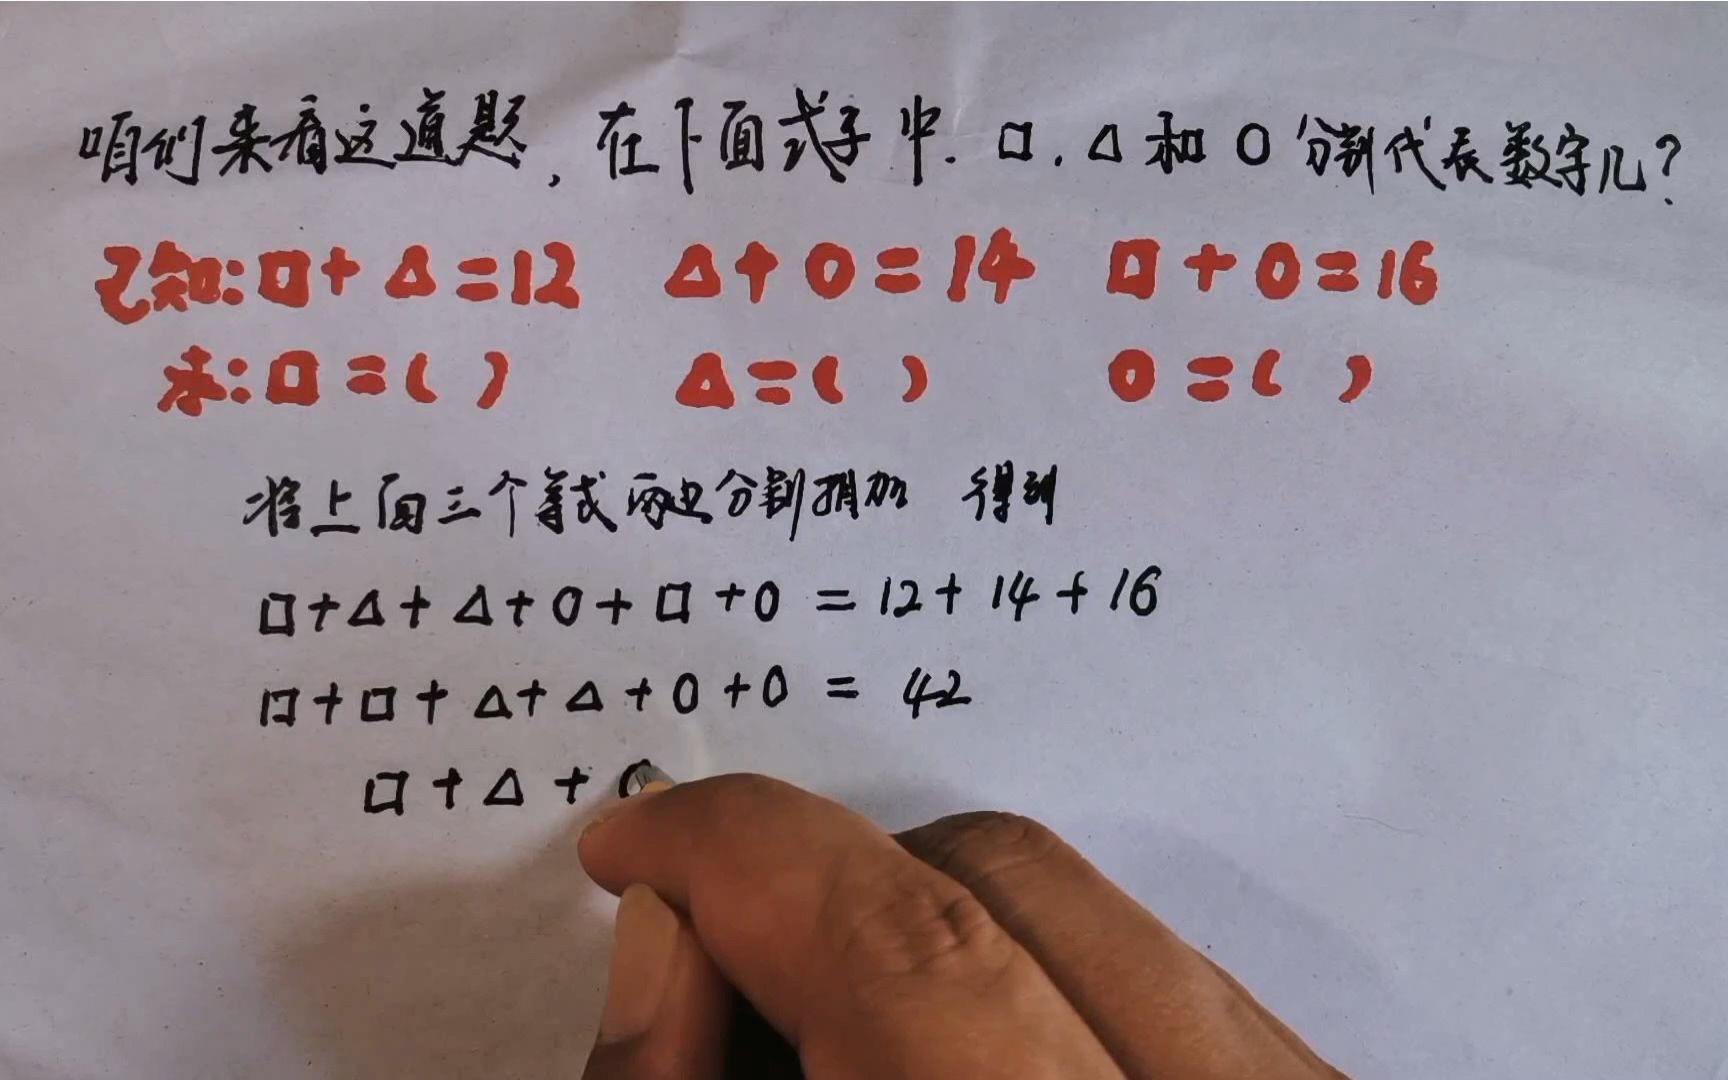 咱们来看这道题,在下面式子中.□,△和○分别代表数字几?
已知:□+△=12 △+○=14 □+○=16
求:□=( ) △=( ) ○=( )
将上面三个等式两边分别相加 得到
□+△+△+○+□+○=12+14+16
□+□+△+△+○+○=42
□+△+○